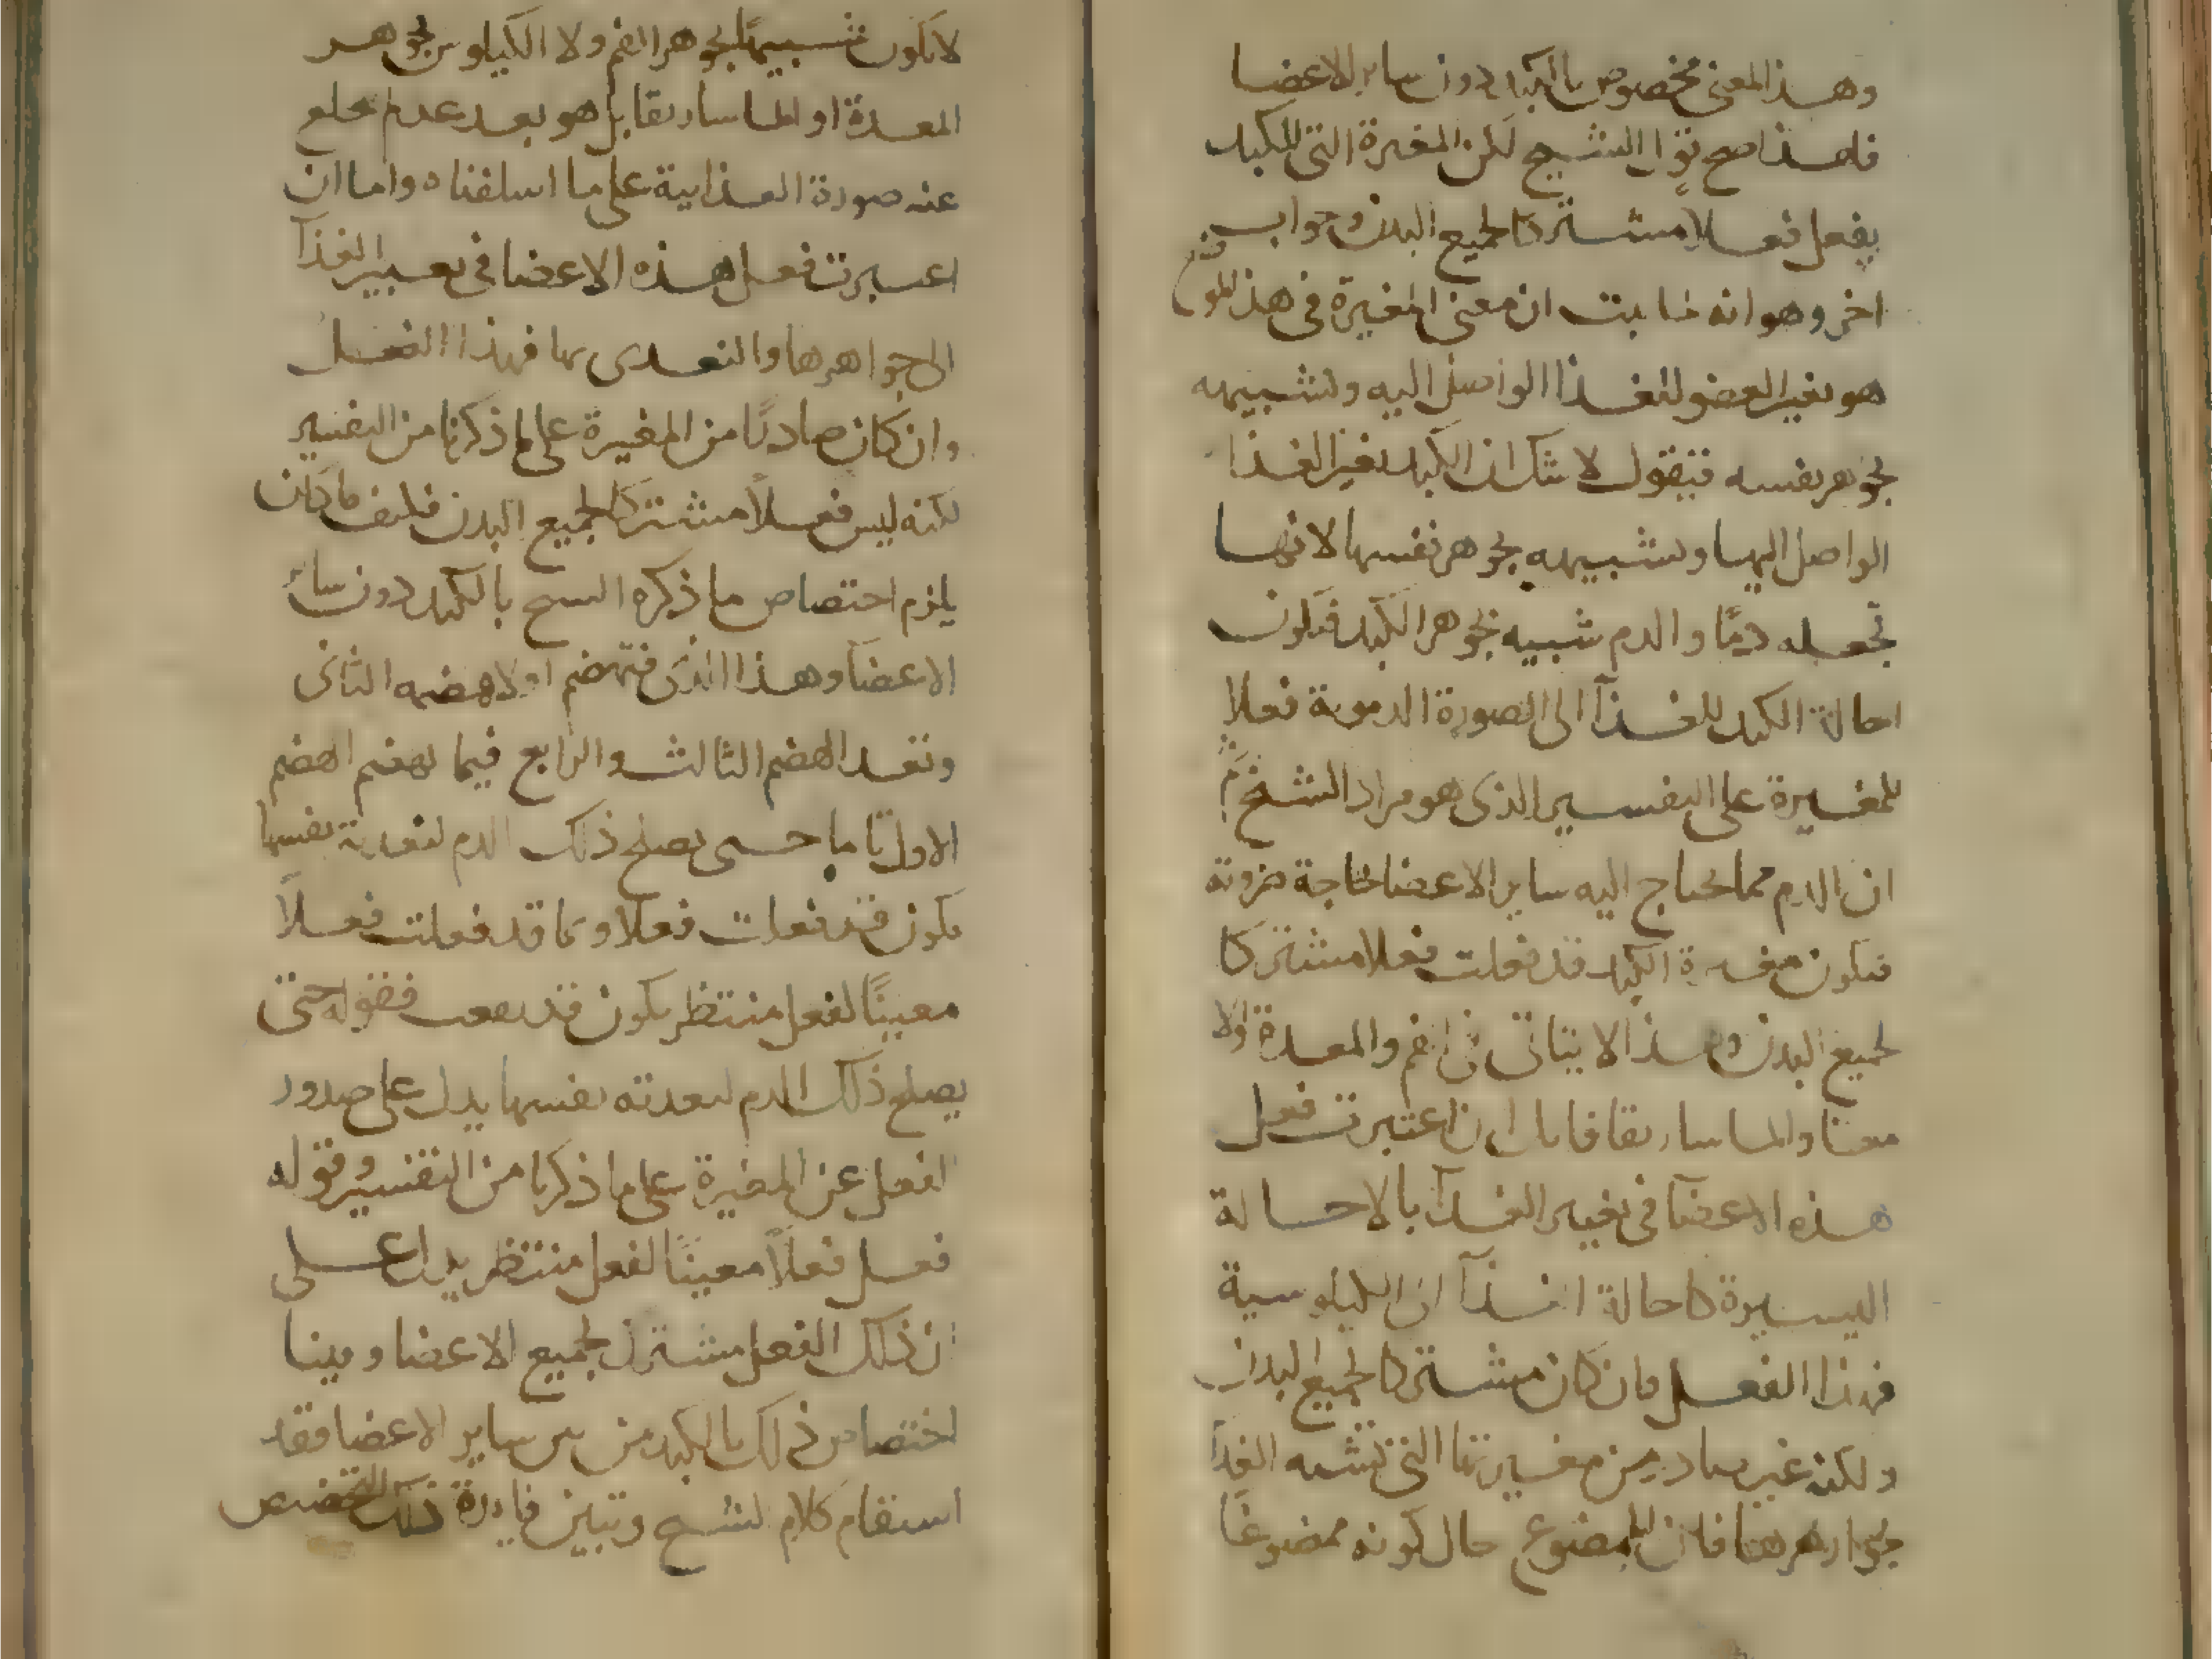 وهذا المعنى مخصوص بالكبد دون ساير الاعضا
فلهذا صح قول الشيخ لكن المغيرة التى للكبد
يفعل فعلا مشتركا لجميع البدن وجواب
اخر وهو انه لما بينت ان معنى المغيرة فى هذا الموضع
هو تغير العضو للغذا الواصل اليه وتشبيهه
بجوهر نفسه فيقول لا شك ان الكبد تغير الغذا
الواصل اليها وتشبيهه بجوهر نفسها لانها
تجعله دمًا والدم شبيه بجوهر الكبد فيكون
احالة الكبد للغذآ الى الصورة الدموية فعلا
للمغيرة على التفسير الذى هو مراد الشيخ ثم
ان الدم مما يحتاج اليه ساير الاعضا حاجة
فتكون مغيرة الكبد قد فعلت فعلا مشتركا
لجميع البدن وهذا لا يتاتى فى الفم والمعدة
والماساريقا ان اعتبرت فعل
هذه الاعضآ فى تغيير الغذآ بالاحالة
اليسيرة كاحالة الغذآ الى الكيلوسية
فهذا الفعل وان كان مشتركا لجميع البدن
ولكنه غير صادر من مغيرتها التى تشبه الغذآ
بجواهرها فان الممضوغ حال كونه ممضوغا
لا يكون شبيهًا بجوهر الفم ولا الكيلوس بجوهر
المعدة او الماساريقا بل هو بعد عدم
عنه صورة الغذايية على ما اسلفناه واما ان
اعتبرت فعل هذه الاعضا فى تغيير الغذآ
الى جواهرها والتغدى بها فهذا الفعل
وان كان صادرًا من المغيرة على ما ذكرنا من التفسير
لكنه ليس فعلاً مشتركا لجميع البدن فكيف ما كان
يلزم اختصاص ما ذكره الشيخ بالكبد دون سائر
الاعضآ وهذا الذى فتهضم اولا هضمه الثانى
وتعد الهضم الثالث والرابع فيما يهضم الهضم
الاول حتى يصلح ذلك الدم لتغدية نفسها
يكون قد فعلت فعلا وقد فعلت فعلاً
معينًا لفعل منتظر يكون قد فقوله حتى
يصلح ذلك الدم لتغديه نفسها يدل على صدور
الفعل عن المغيرة على ما ذكرنا من التفسير وقوله
فعل فعلاً معينًا لفعل منتظر يدل على
ان ذلك الفعل مشترك لجميع الاعضا وبينا
اختصاص ذلك بالكبد من بين ساير الاعضا فقد
استقام كلام الشيخ وتبين فايدة ذلك التخصيص